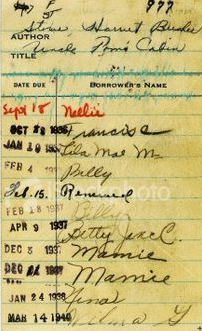 F
St
Stowe, Harriet Beecher
AUTHOR
Uncle Tom's Cabin
TITLE
DATE DUE BORROWER'S NAME
Sept 15 Nellie
OCT 28 1936 Francis C
JAN 19 Lila Mae M.
FEB 4 Billy
Feb. 15. Renewed
FEB 18 1937 Billy
APR 9 1937 Betty Jane C.
DEC 3 1937 Mamie
DEC 1937 Mamie
JAN 24 1938 Gina
MAR 14 1940 Wilma G